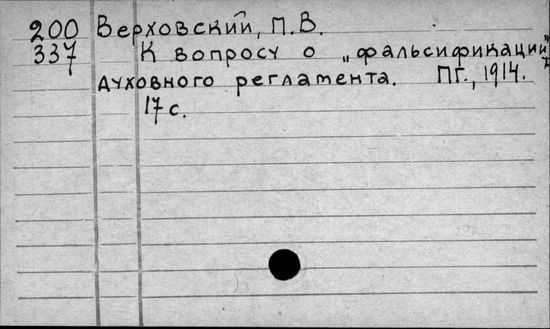 200 Верховский, П.В.
337 К вопросу о „фальсификации"
духовного регламента. ПГ., 1914.
17 с.